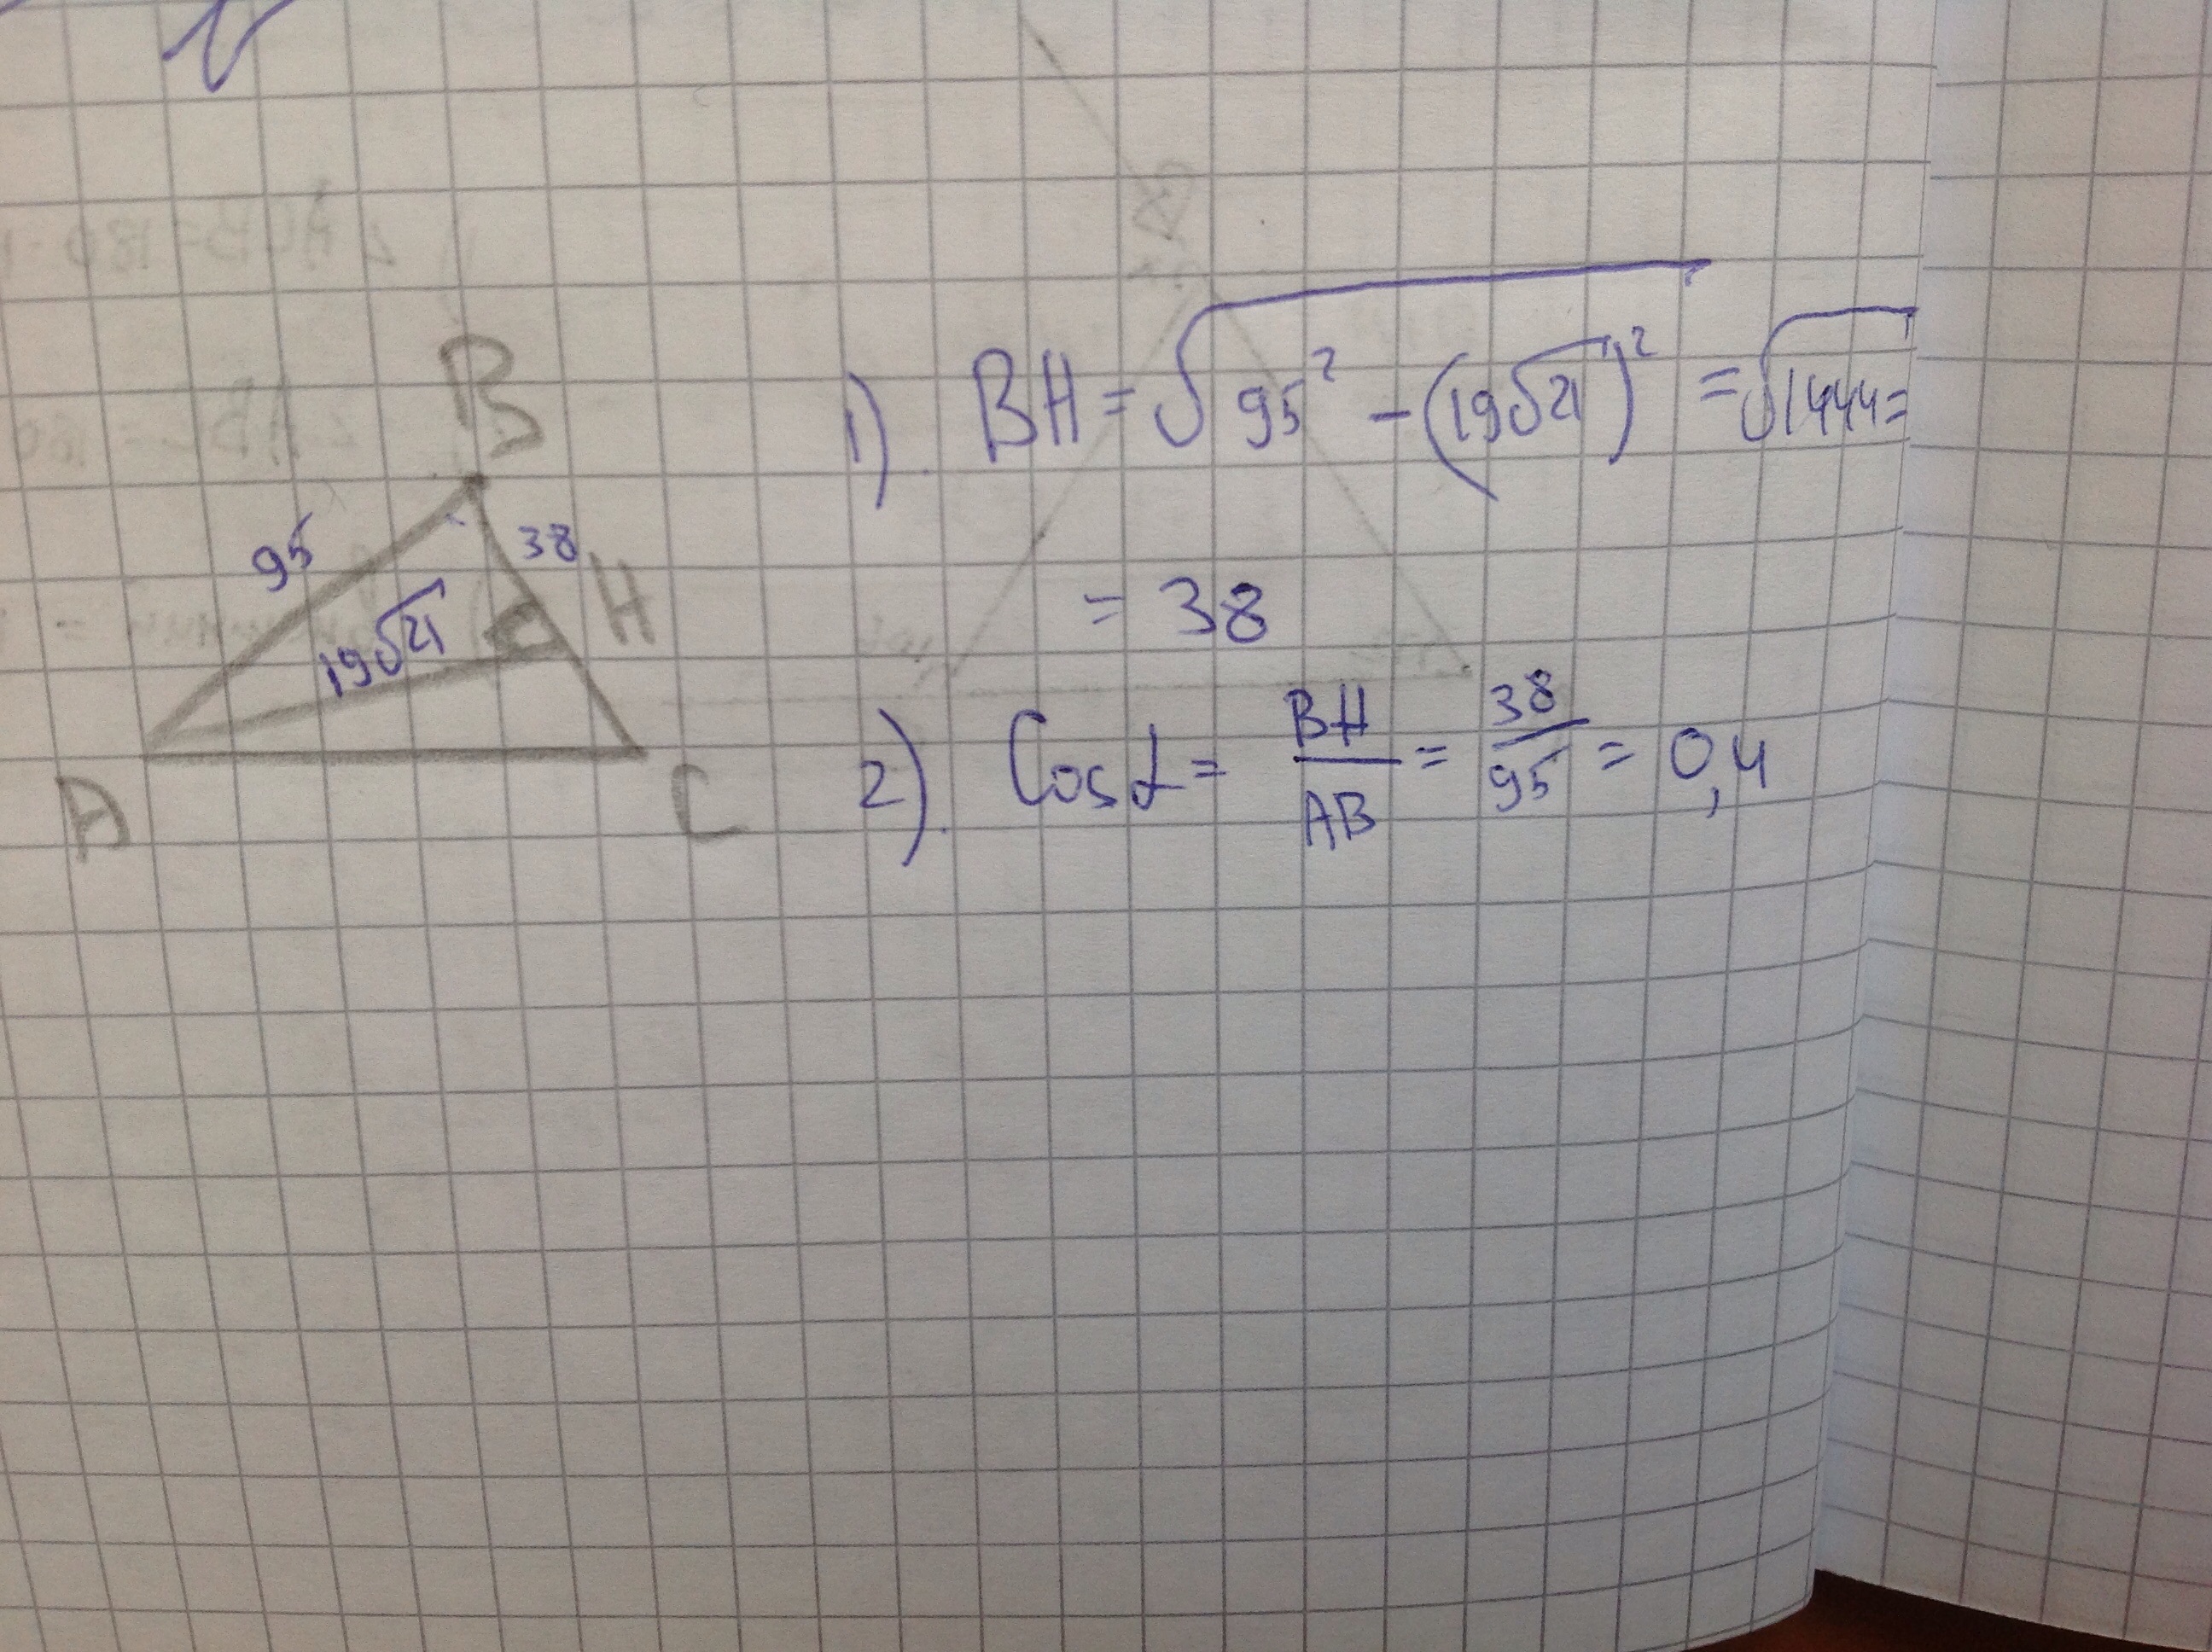 B
95
38
19√21
H
A
C
1). BH = √95² - (19√21)² = √1444 =
= 38
2). Cos α = BH/AB = 38/95 = 0,4